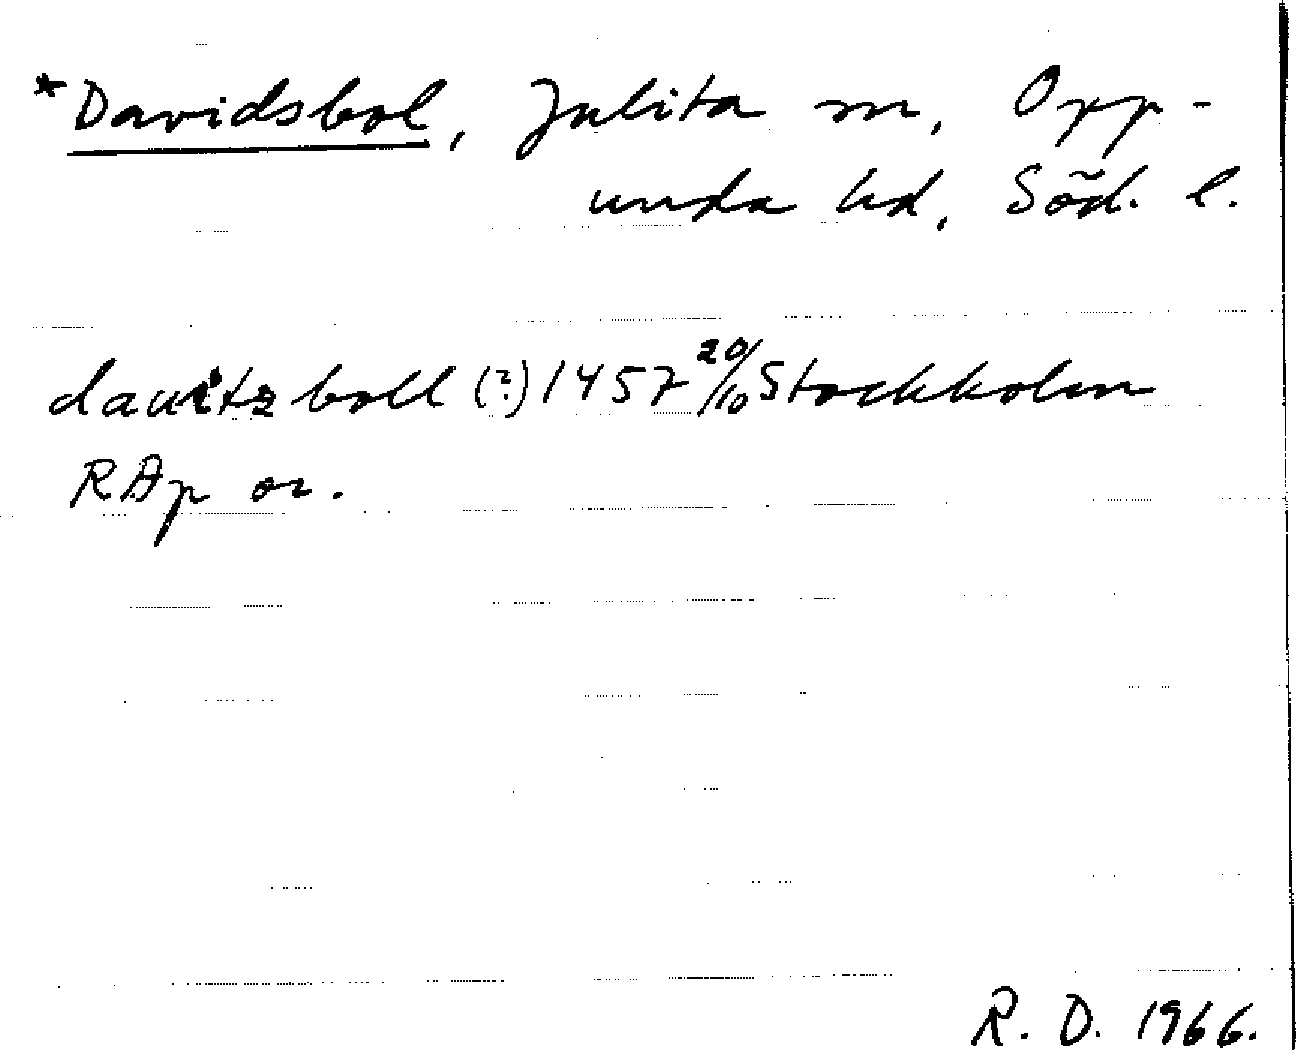 *Davidsbol, Julita sn, Opp-
unda hd, Söd. l.
dauitz boll (?) 1457 20/10 Stockholm
RAp or.
R. D. 1966.